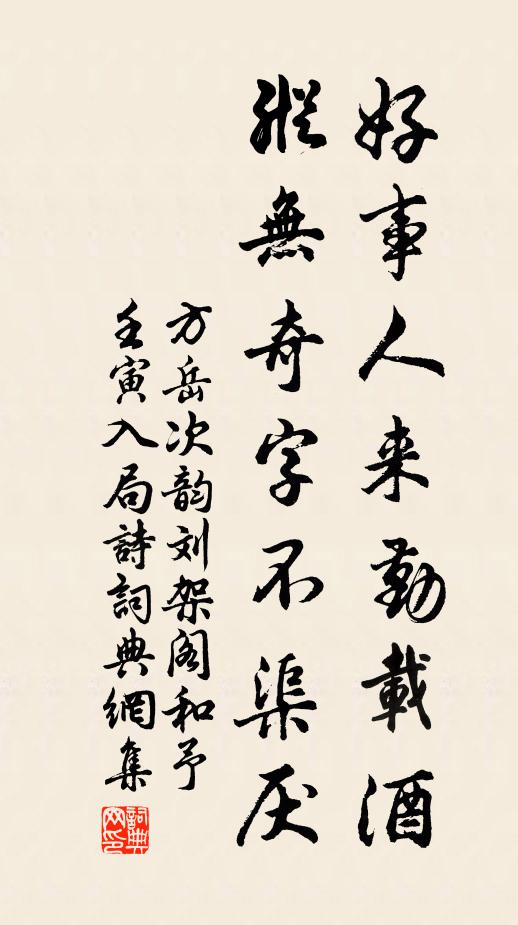 好事人来勤載酒
縱無奇字不渠厌
方岳次韵刘架阁和予
壬寅入局詩詞典網集
詞典网印